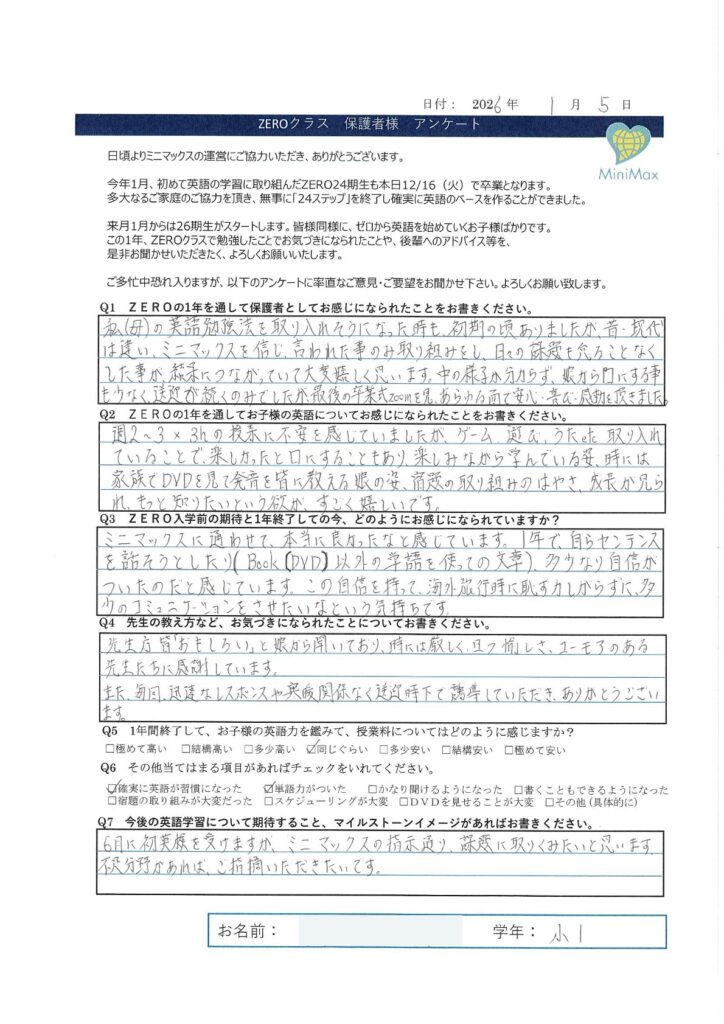 日付： 2026年 1月 5日
ZEROクラス 保護者様 アンケート
MiniMax
日頃よりミニマックスの運営にご協力いただき、ありがとうございます。
今年1月、初めて英語の学習に取り組んだZERO24期生も本日12/16（火）で卒業となります。
多大なるご家庭のご協力を頂き、無事に「24ステップ」を終了し確実に英語のベースを作ることができました。
来月1月からは26期生がスタートします。皆様同様に、ゼロから英語を始めていくお子様ばかりです。
この1年、ZEROクラスで勉強したことでお気づきになられたことや、後輩へのアドバイス等を、
是非お聞かせいただきたく、よろしくお願いいたします。
ご多忙中恐れ入りますが、以下のアンケートに率直なご意見・ご要望をお聞かせ下さい。よろしくお願い致します。
Q1 ＺＥＲＯの1年を通して保護者としてお感じになられたことをお書きください。
私(母)の英語勉強法を取り入れそうになった時も、初期の頃ありましたが、昔・現代
は違い、ミニマックスを信じ、言われた事のみ取り組みをし、日々の課題を怠ることなく
した事が、結果につながっていて大変嬉しく思います。中の様子が分からず、娘から口にする事
もなく、送迎が続くのみでしたが、最後の卒業式zoomを見、あらゆる面で安心・喜び・感動を頂きました。
Q2 ＺＥＲＯの1年を通してお子様の英語についてお感じになられたことをお書きください。
週2～3×3hの授業に不安を感じていましたが、ゲーム、遊び、うたetc取り入れ
ていることで、楽しかったと口にすることもあり楽しみながら学んでいる姿、時には
家族でDVDを見て発音を皆に教える娘の姿、宿題の取り組みのはやさ、成長が見ら
れ、もっと知りたいという欲が、すごく嬉しいです。
Q3 ＺＥＲＯ入学前の期待と1年終了しての今、どのようにお感じになられていますか？
ミニマックスに通わせて、本当に良かったなと感じています。1年で、自らセンテンス
を話そうとしたり(Book(DVD)以外の単語を使っての文章)、多少なり自信が
ついたのだと感じています。この自信を持って、海外旅行時に恥ずかしがらずに、多
少のコミュニケーションをさせたいなという気持ちです。
Q4 先生の教え方など、お気づきになられたことについてお書きください。
先生方皆「おもしろい」と娘から聞いており、時には厳しく、且つ愉しさ、ユーモアのある
先生たちに感謝しています。
また、毎回、迅速なレスポンスや寒暖関係なく送迎時下で誘導していただき、ありがとうござい
ます。
Q5 1年間終了して、お子様の英語力を鑑みて、授業料についてはどのように感じますか？
□極めて高い □結構高い □多少高い ☑同じぐらい □多少安い □結構安い □極めて安い
Q6 その他当てはまる項目があればチェックをいれてください。
☑確実に英語が習慣になった ☑単語力がついた □かなり聞けるようになった □書くこともできるようになった
□宿題の取り組みが大変だった □スケジューリングが大変 □ＤＶＤを見せることが大変 □その他（具体的に）
Q7 今後の英語学習について期待すること、マイルストーンイメージがあればお書きください。
6月に初英検を受けますが、ミニマックスの指示通り、課題に取りくみたいと思います。
不足分野があれば、ご指摘いただきたいです。
お名前：
学年： 小1